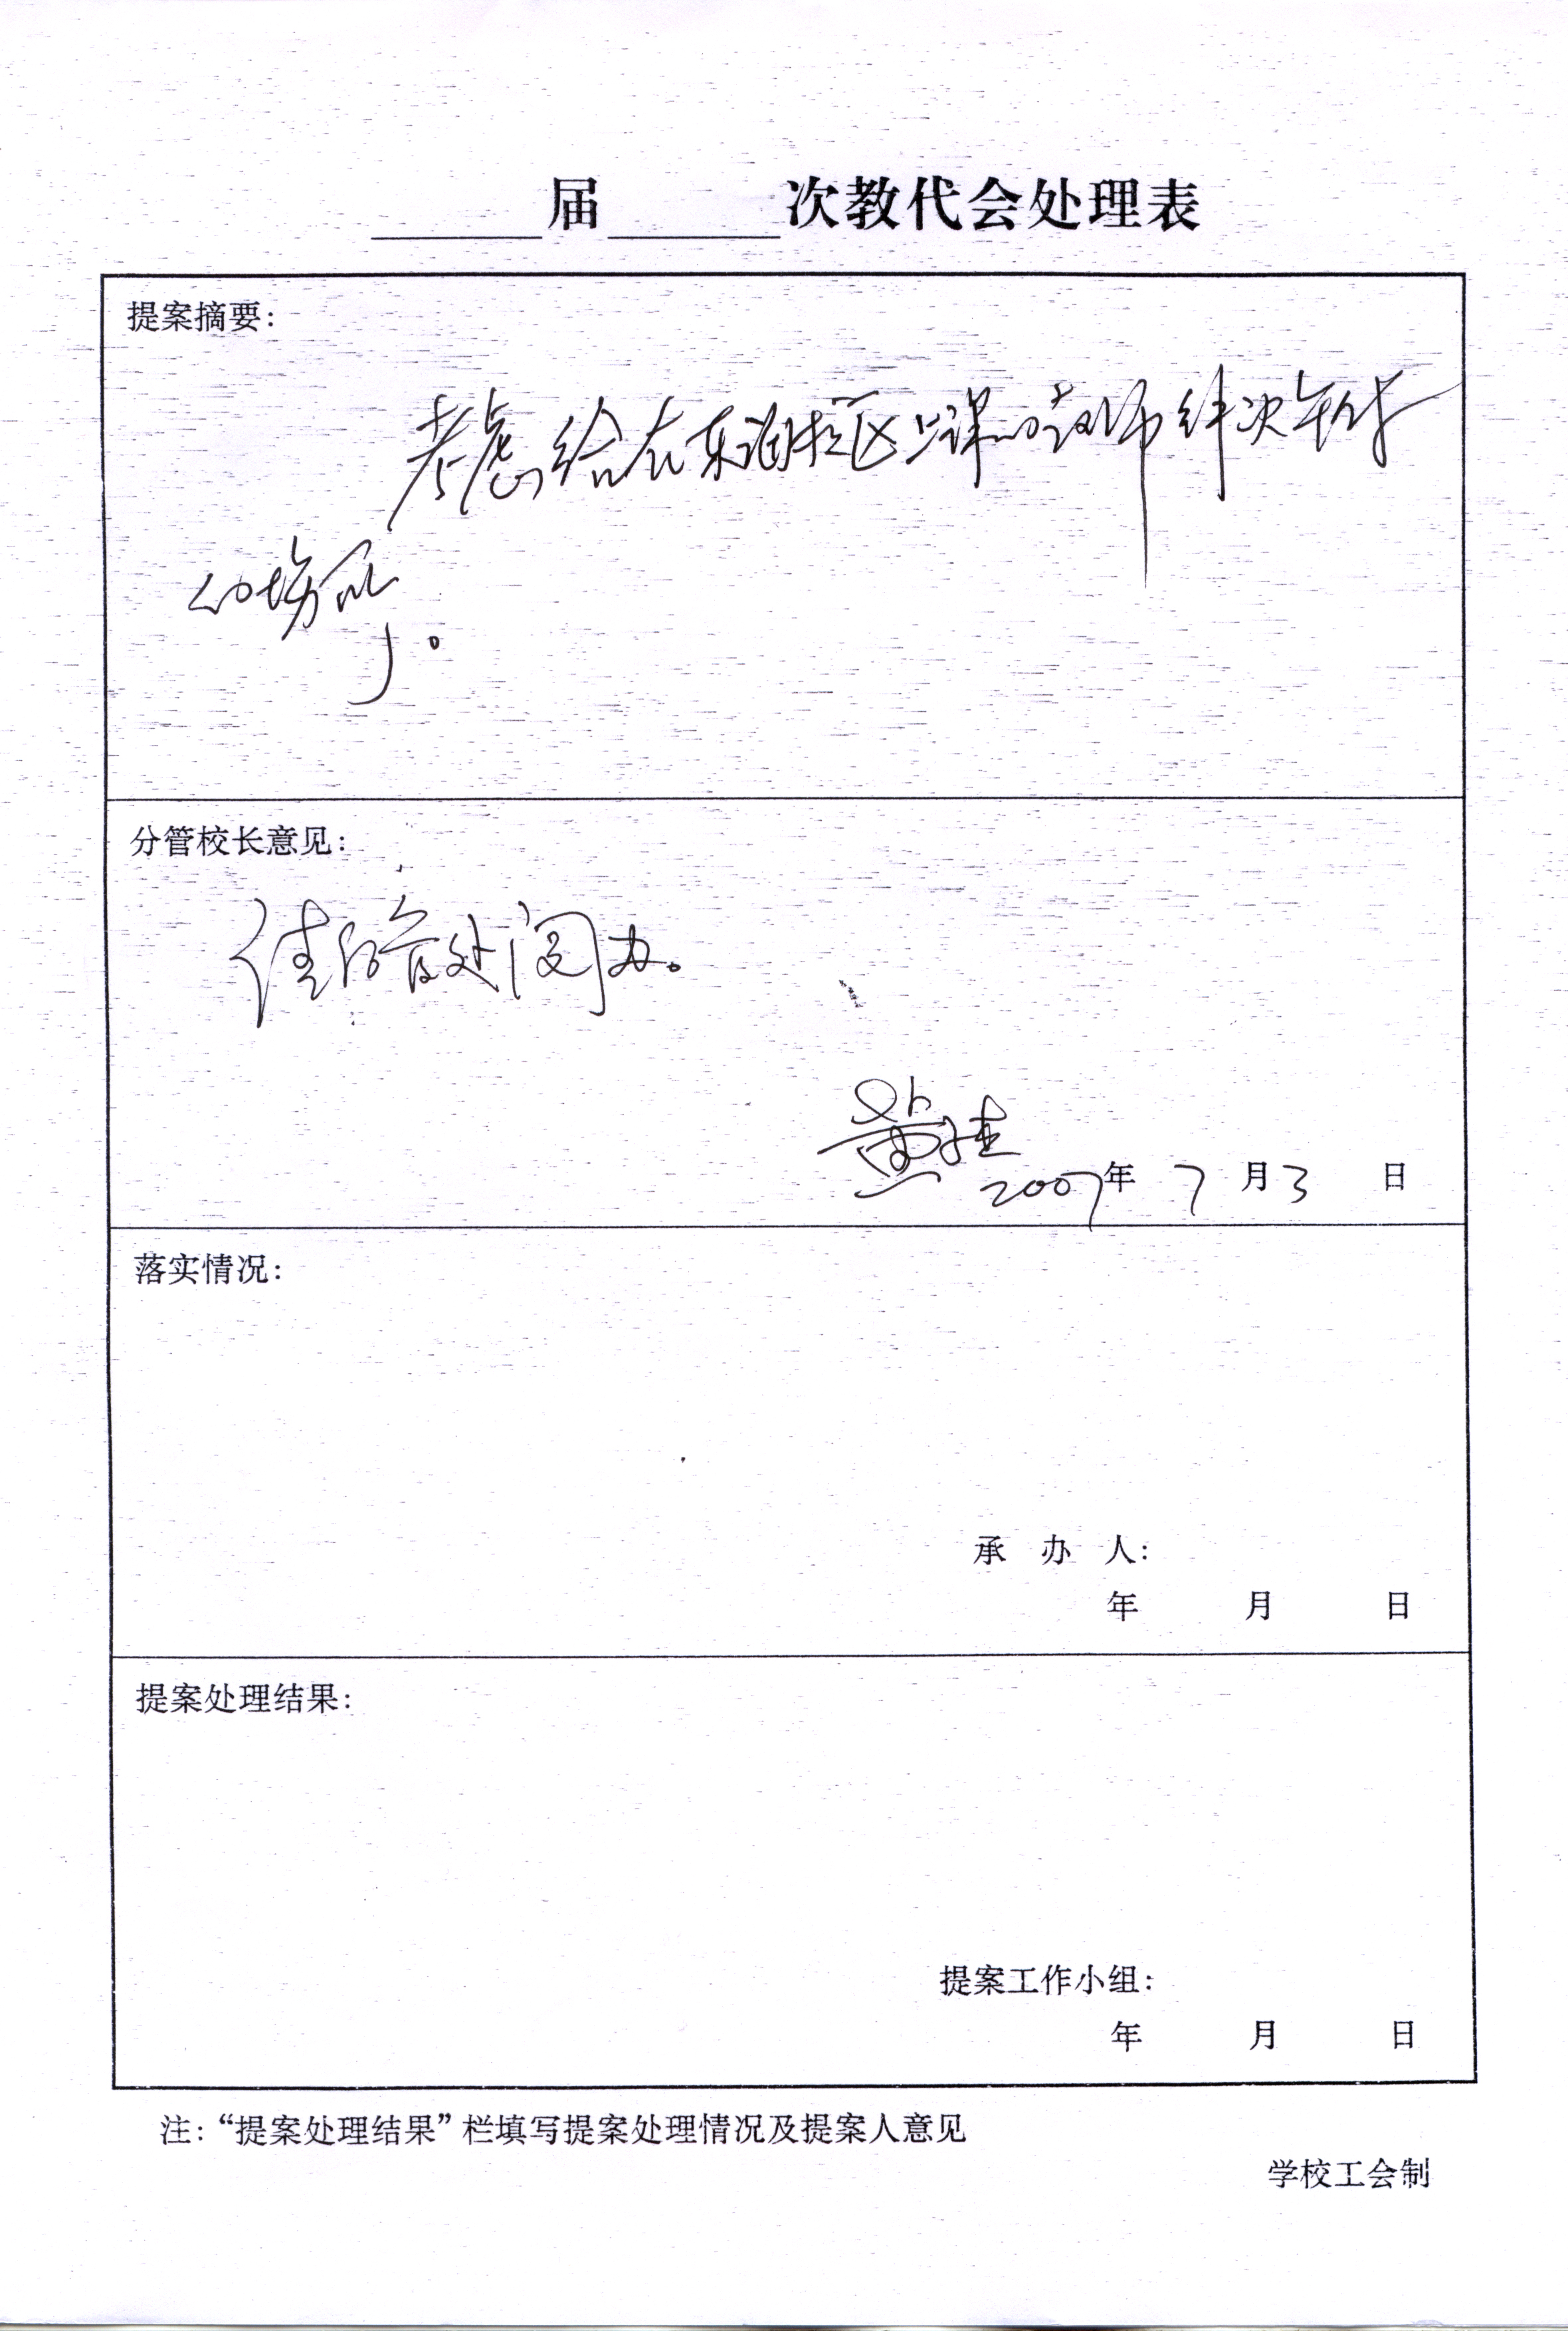 届 次教代会处理表
提案摘要:
考虑给在东润校区上课的教师解决午休
的场所。
分管校长意见:
请后管处阅办。
2007年 7 月 3 日
落实情况:
承 办 人:
年 月 日
提案处理结果:
提案工作小组:
年 月 日
注:“提案处理结果”栏填写提案处理情况及提案人意见
学校工会制